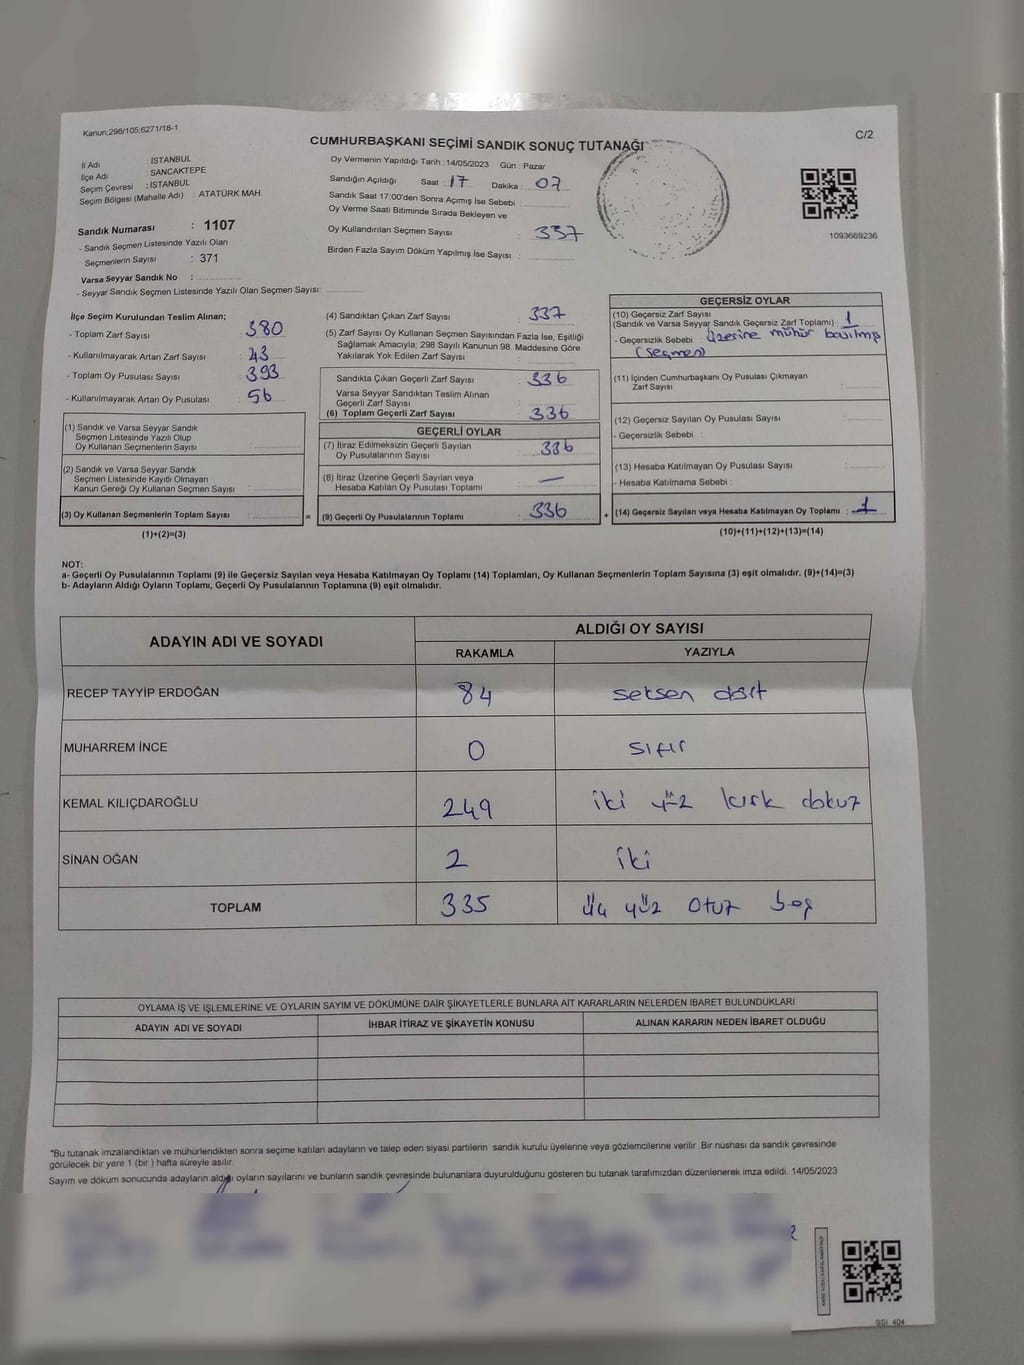 Kanun;298/105;6271/18-1
C/2
CUMHURBAŞKANI SEÇİMİ SANDIK SONUÇ TUTANAĞI
İl Adı : İSTANBUL
İlçe Adı : SANCAKTEPE
Seçim Çevresi : İSTANBUL
Seçim Bölgesi (Mahalle Adı) : ATATÜRK MAH.
Sandık Numarası : 1107
- Sandık Seçmen Listesinde Yazılı Olan
Seçmenlerin Sayısı : 371
Varsa Seyyar Sandık No :
- Seyyar Sandık Seçmen Listesinde Yazılı Olan Seçmen Sayısı:
Oy Vermenin Yapıldığı Tarih : 14/05/2023 Gün : Pazar
Sandığın Açıldığı Saat : 17 Dakika : 07
Sandık Saat 17:00'den Sonra Açımış İse Sebebi :
Oy Verme Saati Bitiminde Sırada Bekleyen ve
Oy Kullandırılan Seçmen Sayısı 337
Birden Fazla Sayım Döküm Yapılmış İse Sayısı :
1093669236
İlçe Seçim Kurulundan Teslim Alınan;
- Toplam Zarf Sayısı : 380
- Kullanılmayarak Artan Zarf Sayısı : 43
- Toplam Oy Pusulası Sayısı : 393
- Kullanılmayarak Artan Oy Pusulası : 56
(1) Sandık ve Varsa Seyyar Sandık
Seçmen Listesinde Yazılı Olup
Oy Kullanan Seçmenlerin Sayısı :
(2) Sandık ve Varsa Seyyar Sandık
Seçmen Listesinde Kayıtlı Olmayan
Kanun Gereği Oy Kullanan Seçmen Sayısı :
(3) Oy Kullanan Seçmenlerin Toplam Sayısı :
(1)+(2)=(3)
(4) Sandıktan Çıkan Zarf Sayısı : 337
(5) Zarf Sayısı Oy Kullanan Seçmen Sayısından Fazla İse, Eşitliği
Sağlamak Amacıyla; 298 Sayılı Kanunun 98. Maddesine Göre
Yakılarak Yok Edilen Zarf Sayısı :
Sandıkta Çıkan Geçerli Zarf Sayısı : 336
Varsa Seyyar Sandıktan Teslim Alınan
Geçerli Zarf Sayısı :
(6) Toplam Geçerli Zarf Sayısı : 336
GEÇERLİ OYLAR
(7) İtiraz Edilmeksizin Geçerli Sayılan
Oy Pusulalarının Sayısı : 336
(8) İtiraz Üzerine Geçerli Sayılan veya
Hesaba Katılan Oy Pusulası Toplamı : —
= (9) Geçerli Oy Pusulalarının Toplamı : 336
GEÇERSİZ OYLAR
(10) Geçersiz Zarf Sayısı
(Sandık ve Varsa Seyyar Sandık Geçersiz Zarf Toplamı) : 1
- Geçersizlik Sebebi : Üzerine mühür basılmış
(Seçmen)
(11) İçinden Cumhurbaşkanı Oy Pusulası Çıkmayan
Zarf Sayısı :
(12) Geçersiz Sayılan Oy Pusulası Sayısı :
- Geçersizlik Sebebi :
(13) Hesaba Katılmayan Oy Pusulası Sayısı :
- Hesaba Katılmama Sebebi :
+ (14) Geçersiz Sayılan veya Hesaba Katılmayan Oy Toplamı : 1
(10)+(11)+(12)+(13)=(14)
NOT:
a- Geçerli Oy Pusulalarının Toplamı (9) ile Geçersiz Sayılan veya Hesaba Katılmayan Oy Toplamı (14) Toplamları, Oy Kullanan Seçmenlerin Toplam Sayısına (3) eşit olmalıdır. (9)+(14)=(3)
b- Adayların Aldığı Oyların Toplamı, Geçerli Oy Pusulalarının Toplamına (9) eşit olmalıdır.
ADAYIN ADI VE SOYADI
ALDIĞI OY SAYISI
RAKAMLA YAZIYLA
RECEP TAYYİP ERDOĞAN 84 seksen dört
MUHARREM İNCE 0 sıfır
KEMAL KILIÇDAROĞLU 249 iki yüz kırk dokuz
SİNAN OĞAN 2 iki
TOPLAM 335 üç yüz otuz beş
OYLAMA İŞ VE İŞLEMLERİNE VE OYLARIN SAYIM VE DÖKÜMÜNE DAİR ŞİKAYETLERLE BUNLARA AİT KARARLARIN NELERDEN İBARET BULUNDUKLARI
ADAYIN ADI VE SOYADI İHBAR İTİRAZ VE ŞİKAYETİN KONUSU ALINAN KARARIN NEDEN İBARET OLDUĞU
*Bu tutanak imzalandıktan ve mühürlendikten sonra seçime katılan adayların ve talep eden siyasi partilerin sandık kurulu üyelerine veya gözlemcilerine verilir. Bir nüshası da sandık çevresinde
görülecek bir yere 1 (bir ) hafta süreyle asılır.
Sayım ve döküm sonucunda adayların aldığı oyların sayılarını ve bunların sandık çevresinde bulunanlara duyurulduğunu gösteren bu tutanak tarafımızdan düzenlenerek imza edildi. 14/05/2023
SSI_404